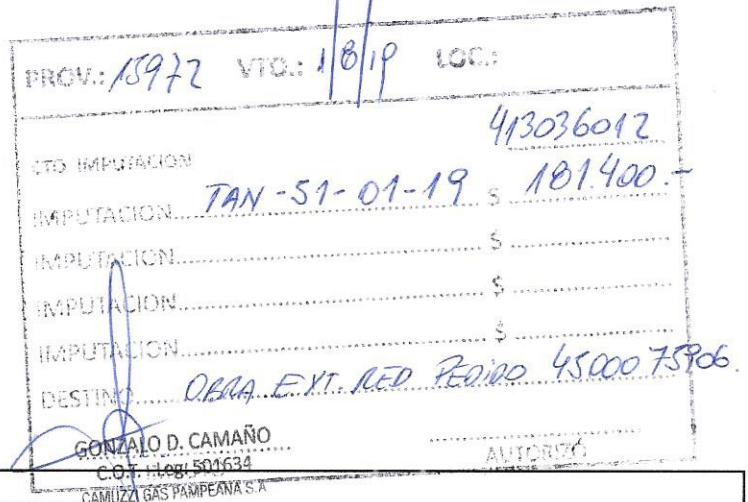 PROV.: 15972 VTO.: 1/8/19 LOC.:
413036012
CTO IMPUTACION
IMPUTACION TAN-51-01-19 $ 181.400.-
IMPUTACION $
IMPUTACION $
IMPUTACION $
DESTINO OBRA EXT. RED PEDIDO 4500075906
GONZALO D. CAMAÑO
C.O.T. Leg: 501634
AUTORIZÓ
CAMUZZI GAS PAMPEANA S.A